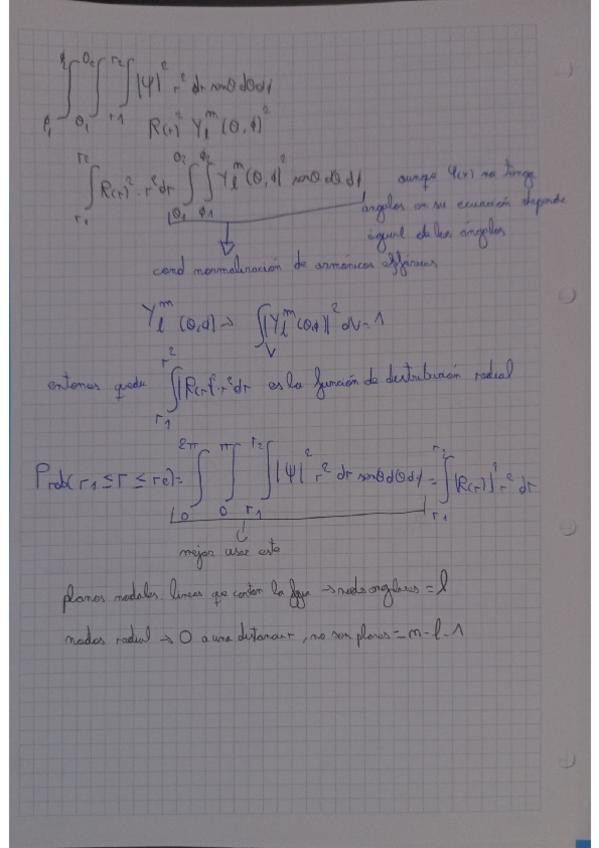 ∫φ₁^φ₂ ∫θ₁^θ₂ ∫r₁^r₂ |Ψ|² r² dr senθ dθ dφ
R(r)² Yₗᵐ(θ,φ)²
∫r₁^r₂ R(r)²·r² dr ∫θ₁^θ₂ ∫φ₁^φ₂ Yₗᵐ(θ,φ)² senθ dθ dφ
aunque Ψ(r) no tenga
ángulos en su ecuación depende
igual de los ángulos
cond normalización de armónicos esféricos
Yₗᵐ(θ,φ) → ∫|Yₗᵐ(θ,φ)|² dV = 1
entonces queda ∫r₁^r² |R(r)|²·r² dr es la función de distribución radial
Prob(r₁ ≤ r ≤ r₂) = ∫0^2π ∫0^π ∫r₁^r₂ |Ψ|² r² dr senθ dθ dφ = ∫r₁^r₂ |R(r)|² r² dr
mejor usar esta
planos nodales: lineas que cortan la → nodos angulares = l
nodos radial → 0 a una distancia r, no son planos = n-l-1